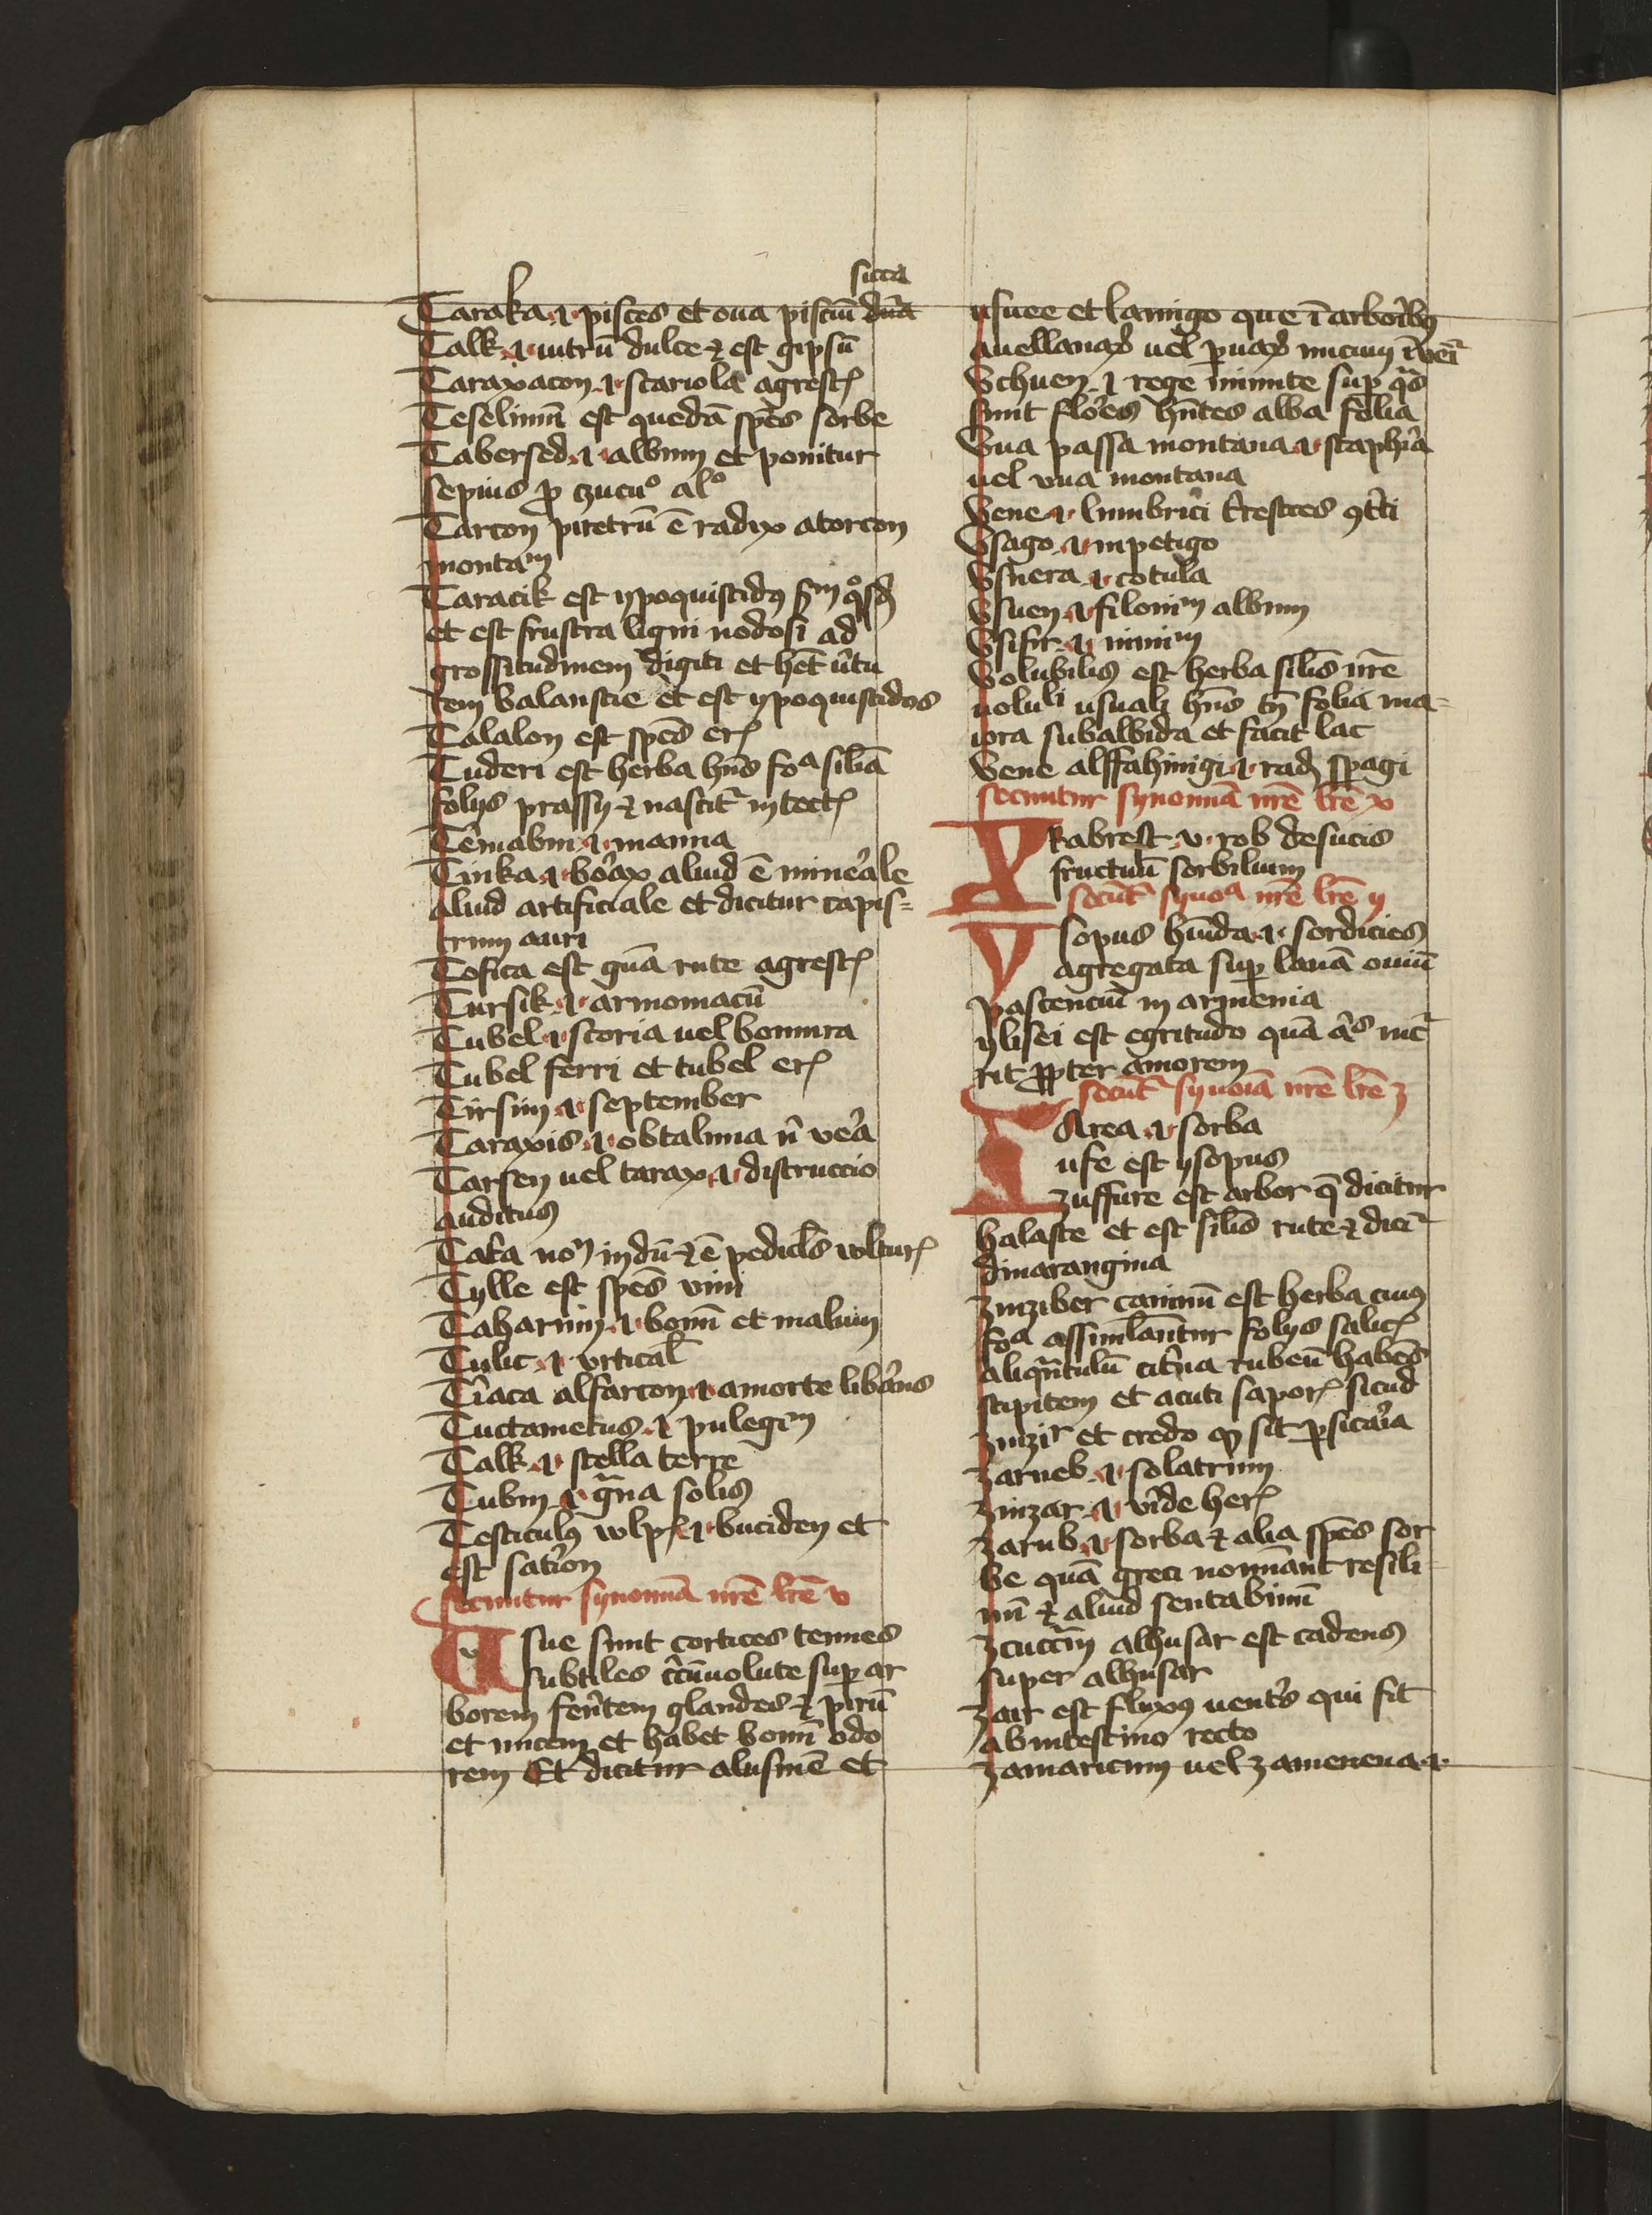 sicca
Taraka .i. pisces et oua pisciū dūa
Talk .i. uitrū dulce ⁊ est gipsū
Taraxacon .i. scariola agrestꝭ
Teselinū est quedā spēs sorbe
Tabersed .i. albnm et ponitur
sepius ꝑ zucuº alº
Tarcon piretrū ē radix atorcon
montaᵐ
Taracik est ypoquistidꝯ
et est frustra ligni nodosi ad
grossitudinem digiti et hēt ūtu
tem balaustie et est ypoquistidos
Talalon est spēs erꝭ
Tuderi est herba hn̄s foᵃ siliā
folys prassy ⁊ nascitᷣ in tectꝭ
.i. manna
Tinka .i. borax aliud ē minerale
Aliud artificiale et dicitur capis=
trum auri
Tofica est gūa rute agrestꝭ
Tursik .i. armoniacū
Tubel .i. scoria uel
Tubel ferri et tubel erꝭ
Tirsin .i. september
Taraxis .i. obtalmia n̄ vera
Tarsen uel tarax .i. distruccio
auditus
ē pediclꝰ
Tylle est spēs vini
Taharnin .i. bonū et malum
Tulic .i. vrtical
Tiriaca alfarcon .i. amorte liberans
Tuctametus .i. pulegiᵐ
Talk .i. stella terre
Tubin .i. grana solis
Testiculꝯ wlpꝭ .i. buciden et
est satirion
secuntur synonima nrē lrē v
Usue sunt cortices tenues
subtiles circūuolute super ar
borem ferentem glandes ⁊ pirū
et nucem et habet bonū odo
rem Et dicitur alusnē et
usuee et lanugo que ī arboribꝯ
auellanaꝝ uel nucum
Uchuen .i. rege minute sup qͣs
sunt flores hn̄tes alba folia
Uua passa montana .i. staphia
uel vua montana
Uene .i. lumbrici trestres
Usago .i. inpetigo
Usnera .i. cotula
Usuen .i. filoniᵐ albnm
Usifir .i. miniᵐ
Uolubilis est herba silis nrē
uolulⁱ usuali hn̄s tn̄ folia ma=
iora subalbida et facit lac
Uene alffahingi .i. radꝭ spagi
secuntur synonimā nrē lrē x
Xkabrest .i. rob desucis
fructuū sorbiliuum
secūtᷣ synoᵃ nrē lrē y
Ysopus hūida .i. sordicies
agregata sup lanā ouiū
pascenciū in armenia
ylisei est egritudo quā
rit ꝓpter amorem
secūtᷣ synoiā nrē lrē z
ZArea .i. sorba
ufe est ysopus
zuffure est arbor q̄ dicitur
halaste et est silis rute ⁊ diciᷣ
dinarangina
zinziber caninū est herba cuiꝯ
foᵃ assimilantur folys salicꝭ
aliquātulū citrina rubeū habens
stipitem et acuti saporꝭ sicud
zinziʳ et credo ꝙ sit ꝑsicaria
zarneb .i. solatrum
zinzar .i. viride herꝭ
zarub .i. sorba ⁊ alia spēs sor
be quā greci nominant resili
nū ⁊ aliud sentabinū
alhusar est cadens
super alhusar
zair est fluxꝯ uentris qui fit
ab intestino recto
zamaricum uel zamenena .i.